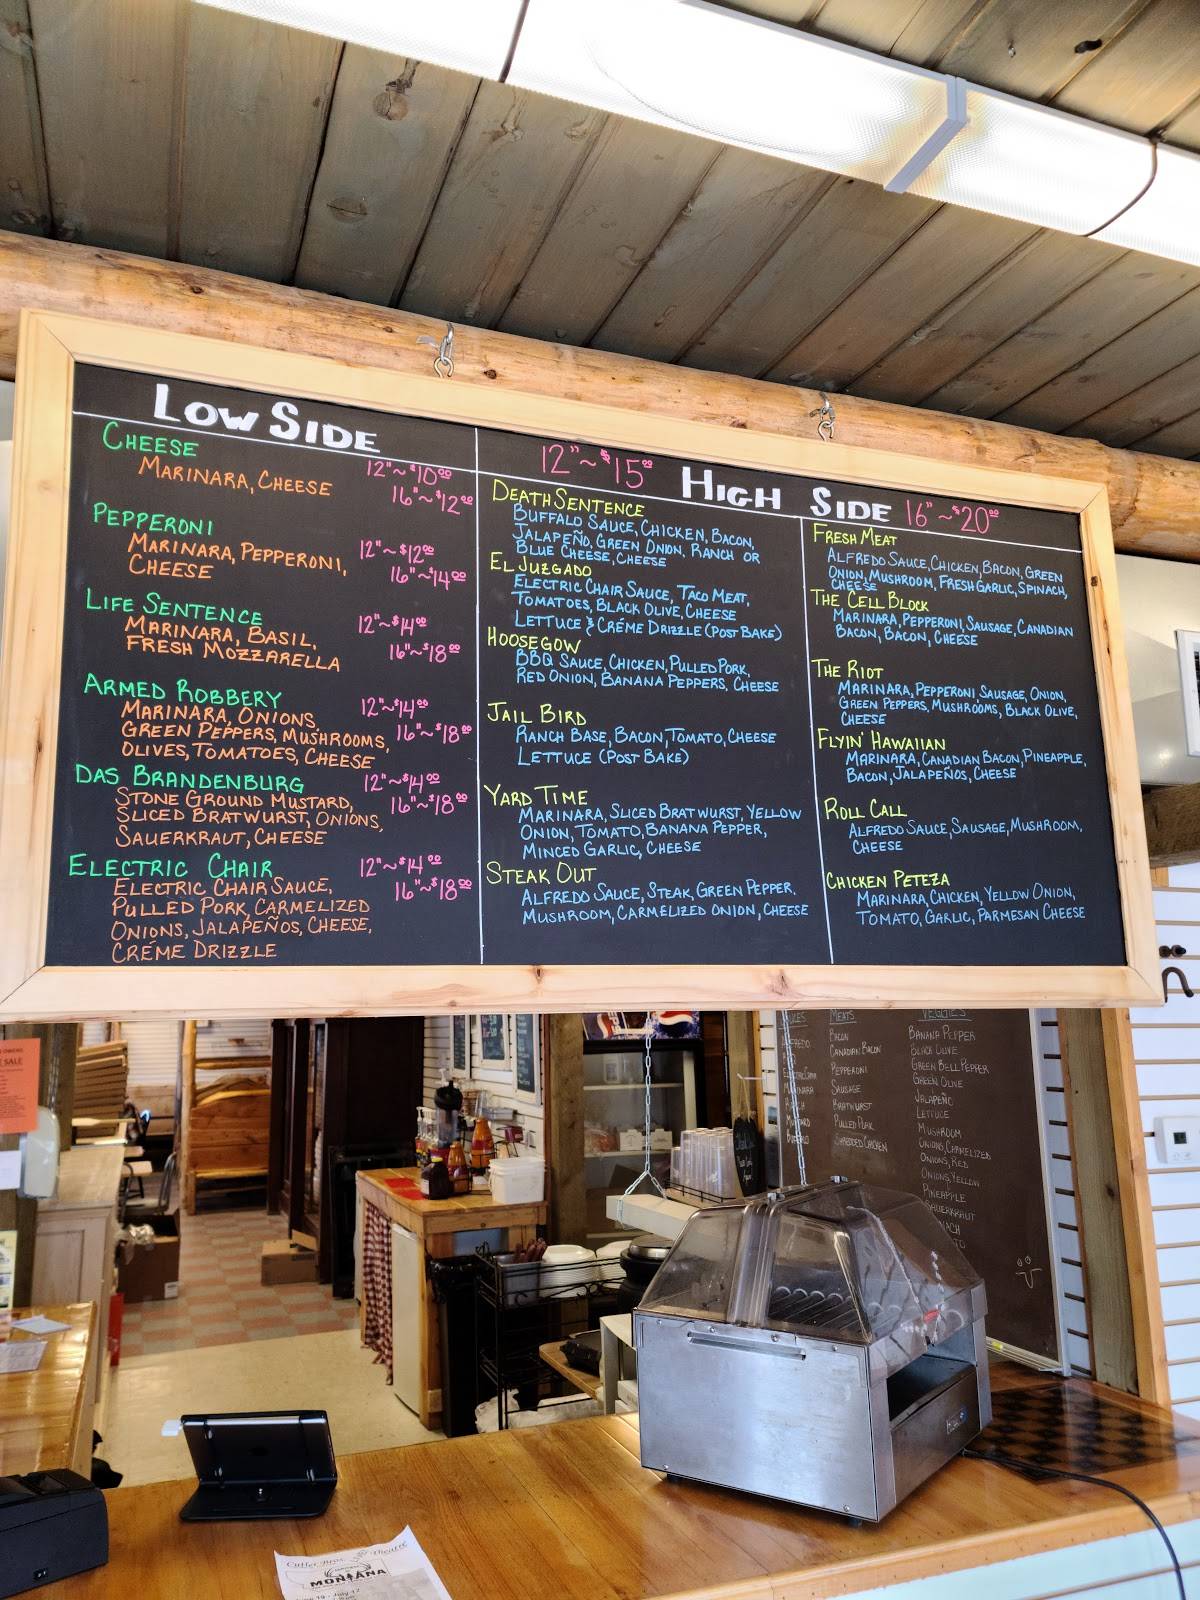 LOW SIDE
CHEESE
MARINARA, CHEESE
12"~$10.00
16"~$12.00
PEPPERONI
MARINARA, PEPPERONI,
CHEESE
12"~$12.00
16"~$14.00
LIFE SENTENCE
MARINARA, BASIL,
FRESH MOZZARELLA
12"~$14.00
16"~$18.00
ARMED ROBBERY
MARINARA, ONIONS,
GREEN PEPPERS, MUSHROOMS,
OLIVES, TOMATOES, CHEESE
12"~$14.00
16"~$18.00
DAS BRANDENBURG
STONE GROUND MUSTARD,
SLICED BRATWURST, ONIONS,
SAUERKRAUT, CHEESE
12"~$14.00
16"~$18.00
ELECTRIC CHAIR
ELECTRIC CHAIR SAUCE,
PULLED PORK, CARMELIZED
ONIONS, JALAPEÑOS, CHEESE,
CRÉME DRIZZLE
12"~$14.00
16"~$18.00
12"~$15.00 HIGH SIDE 16"~$20.00
DEATH SENTENCE
BUFFALO SAUCE, CHICKEN, BACON,
JALAPEÑO, GREEN ONION, RANCH OR
BLUE CHEESE, CHEESE
EL JUZGADO
ELECTRIC CHAIR SAUCE, TACO MEAT,
TOMATOES, BLACK OLIVE, CHEESE
LETTUCE & CRÉME DRIZZLE (POST BAKE)
HOOSEGOW
BBQ SAUCE, CHICKEN, PULLED PORK,
RED ONION, BANANA PEPPERS, CHEESE
JAIL BIRD
RANCH BASE, BACON, TOMATO, CHEESE
LETTUCE (POST BAKE)
YARD TIME
MARINARA, SLICED BRATWURST, YELLOW
ONION, TOMATO, BANANA PEPPER,
MINCED GARLIC, CHEESE
STEAK OUT
ALFREDO SAUCE, STEAK, GREEN PEPPER,
MUSHROOM, CARMELIZED ONION, CHEESE
FRESH MEAT
ALFREDO SAUCE, CHICKEN, BACON, GREEN
ONION, MUSHROOM, FRESH GARLIC, SPINACH,
CHEESE
THE CELL BLOCK
MARINARA, PEPPERONI, SAUSAGE, CANADIAN
BACON, BACON, CHEESE
THE RIOT
MARINARA, PEPPERONI, SAUSAGE, ONION,
GREEN PEPPERS, MUSHROOMS, BLACK OLIVE,
CHEESE
FLYIN' HAWAIIAN
MARINARA, CANADIAN BACON, PINEAPPLE,
BACON, JALAPEÑOS, CHEESE
ROLL CALL
ALFREDO SAUCE, SAUSAGE, MUSHROOM,
CHEESE
CHICKEN PETEZA
MARINARA, CHICKEN, YELLOW ONION,
TOMATO, GARLIC, PARMESAN CHEESE
MEATS
BACON
CANADIAN BACON
PEPPERONI
SAUSAGE
BRATWURST
PULLED PORK
SHREDDED CHICKEN
VEGGIES
BANANA PEPPER
BLACK OLIVE
GREEN BELL PEPPER
GREEN OLIVE
JALAPEÑO
LETTUCE
MUSHROOM
ONIONS, CARMELIZED
ONIONS, RED
ONIONS, YELLOW
PINEAPPLE
SAUERKRAUT
SALE
MONTANA